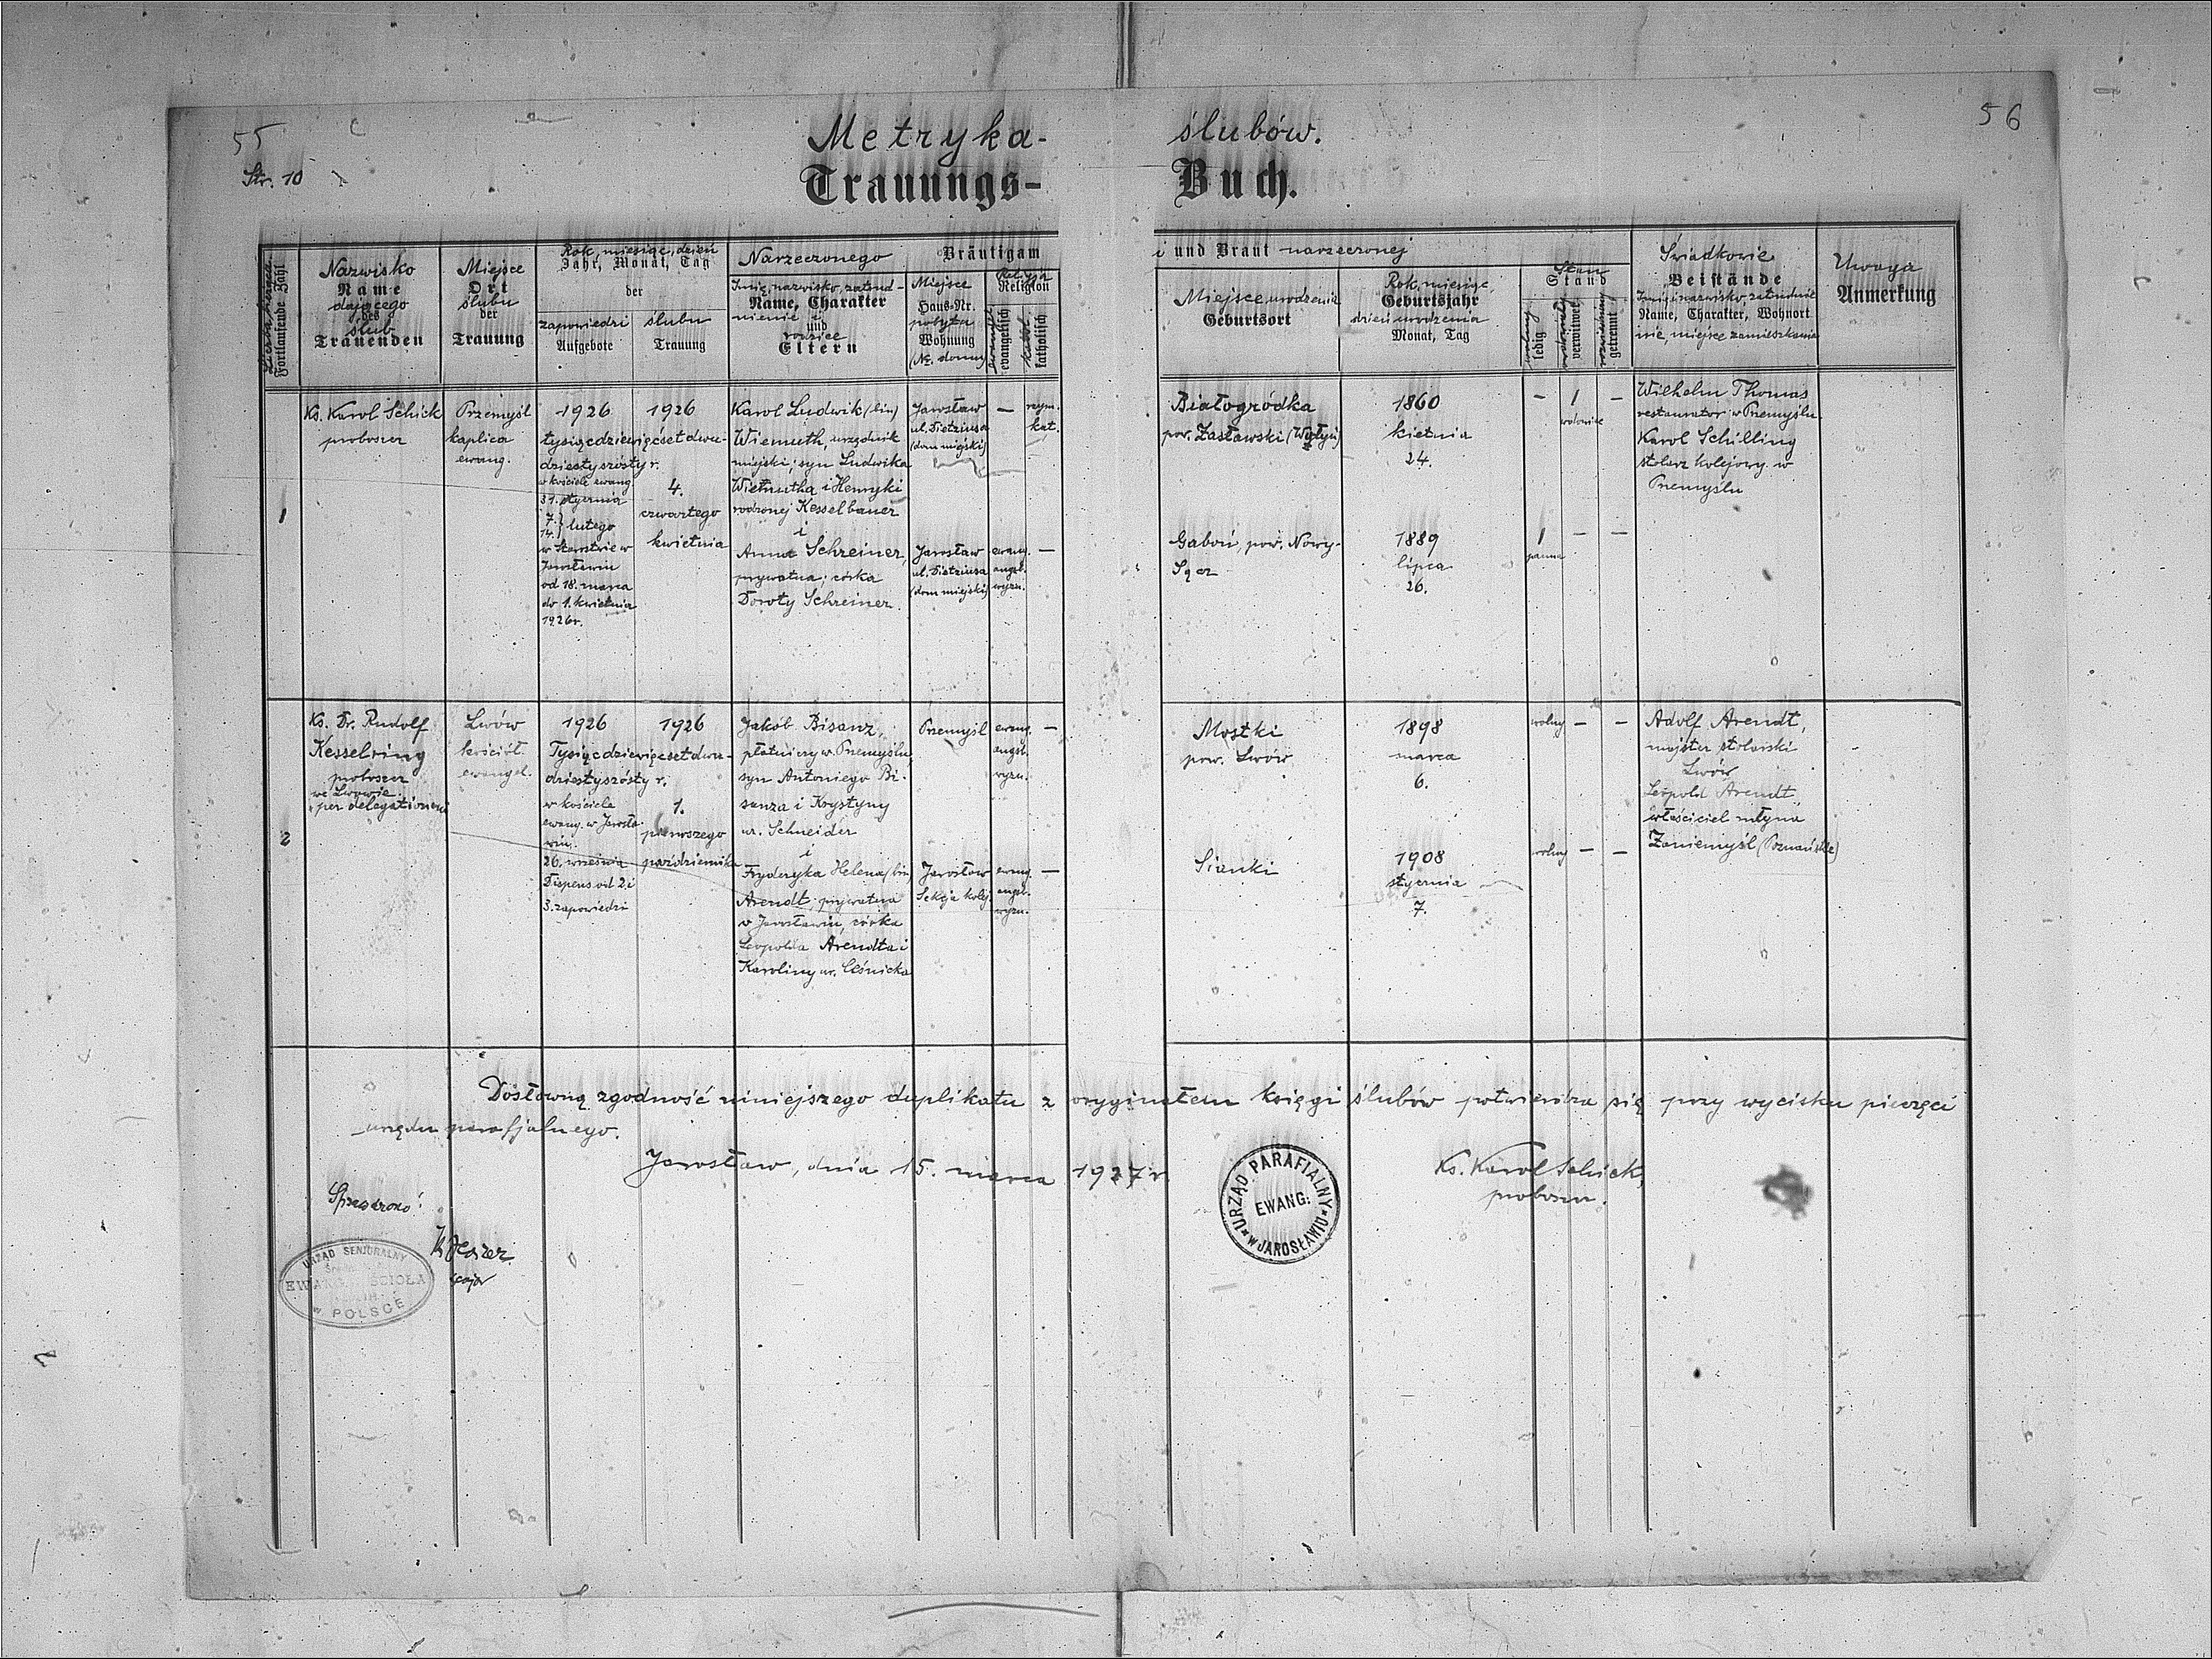 55
56
Str. 10
Metryka- ślubów.
Trauungs- Buch.
Liczba
Fortlaufende Zahl
Nazwisko
Name
dającego
des
ślub
Trauenden
Miejsce
Ort
ślubu
der
Trauung
Rok, miesiąc, dzień
Jahr, Monat, Tag
der
zapowiedzi
Aufgebote
ślubu
Trauung
Narzeczonego Bräutigam
i und Braut narzeczonej
Imię, nazwisko, zatrud-
Name, Charakter
nienie i
und
rodzice
Eltern
Miejsce
Haus-Nr.
pobytu
Wohnung
(Nr. domu)
Religja
Religion
evangelisch
katholisch
Miejsce urodzenia
Geburtsort
Rok, miesiąc,
Geburtsjahr
dzień urodzenia
Monat, Tag
Stan
Stand
wolny
ledig
verwitwet
getrennt
Świadkowie
Beistände
Imię i nazwisko, zatrudnie
Name, Charakter, Wohnort
nie, miejsce zamieszkania
Uwaga
Anmerkung
1
Ks. Karol Schick
proboszcz
Przemyśl
kaplica
ewang.
1926 1926
tysiącdziewięćset dwu-
dziestyszósty r.
w kościele ewang.
31. stycznia
7.
14. } lutego
w Starostwie w
Jarosławiu
od 18. marca
do 1. kwietnia
1926 r.
4.
czwartego
kwietnia
Karol Ludwik (bin)
Wiemuth, urzędnik
miejski; syn Ludwika
i Henryki
rodzonej Kesselbauer
i
Anna Schreiner,
prywatna; córka
Doroty Schreiner.
Jarosław
ul. Dietziusa
(dom miejski)
—
rzym.
kat.
Jarosław
ul. Dietziusa
(dom miejski)
ewang.
augsb.
wyzn.
—
Białogródka
pow. Zasławski (Wołyń)
1860
kwietnia
24.
- 1 -
wdowiec
Gaboń, pow. Nowy-
Sącz
1889
lipca
26.
1 — —
panna
Wilhelm Thomas
restaurator w Przemyślu
Karol Schilling
stolarz kolejowy w
Przemyślu
2
Ks. Dr. Rudolf
Kesselring
proboszcz
we Lwowie.
per delegationem
Lwów
kościół
ewangel.
1926 1926
Tysiącdziewięćset dwu-
dziestyszósty r.
w kościele
ewang. w Jarosła-
wiu.
26. września
Dispens od 2 i
3. zapowiedzi
1.
pierwszego
października
Jakób Bisanz,
płatniczy w Przemyślu,
syn Antoniego Bi-
sanza i Krystyny
ur. Schneider
i
Fryderyka Helena (bin)
Arendt, prywatna
w Jarosławiu, córka
Leopolda Arendta i
Karoliny ur. Leśnicka
Przemyśl
ewang.
augsb.
wyzn.
—
Jarosław
Sekcja kolej.
ewang.
augsb.
wyzn.
—
Mostki
pow. Lwów
1898
marca
6.
wolny — —
Sianki
1908
stycznia
7.
wolny — —
Adolf Arendt,
majster stolarski
Lwów
Leopold Arendt,
właściciel młyna
Zaniemyśl (Poznańskie)
Dosłowną zgodność niniejszego duplikatu z oryginałem księgi ślubów potwierdza się przy wycisku pieczęci
urzędu parafjalnego.
Jarosław, dnia 15. marca 1927 r.
URZĄD PARAFIALNY
EWANG:
W JAROSŁAWIU
Ks. Karol Schick,
proboszcz.
Sprawdzono!
URZĄD SENJORALNY
POLSCE